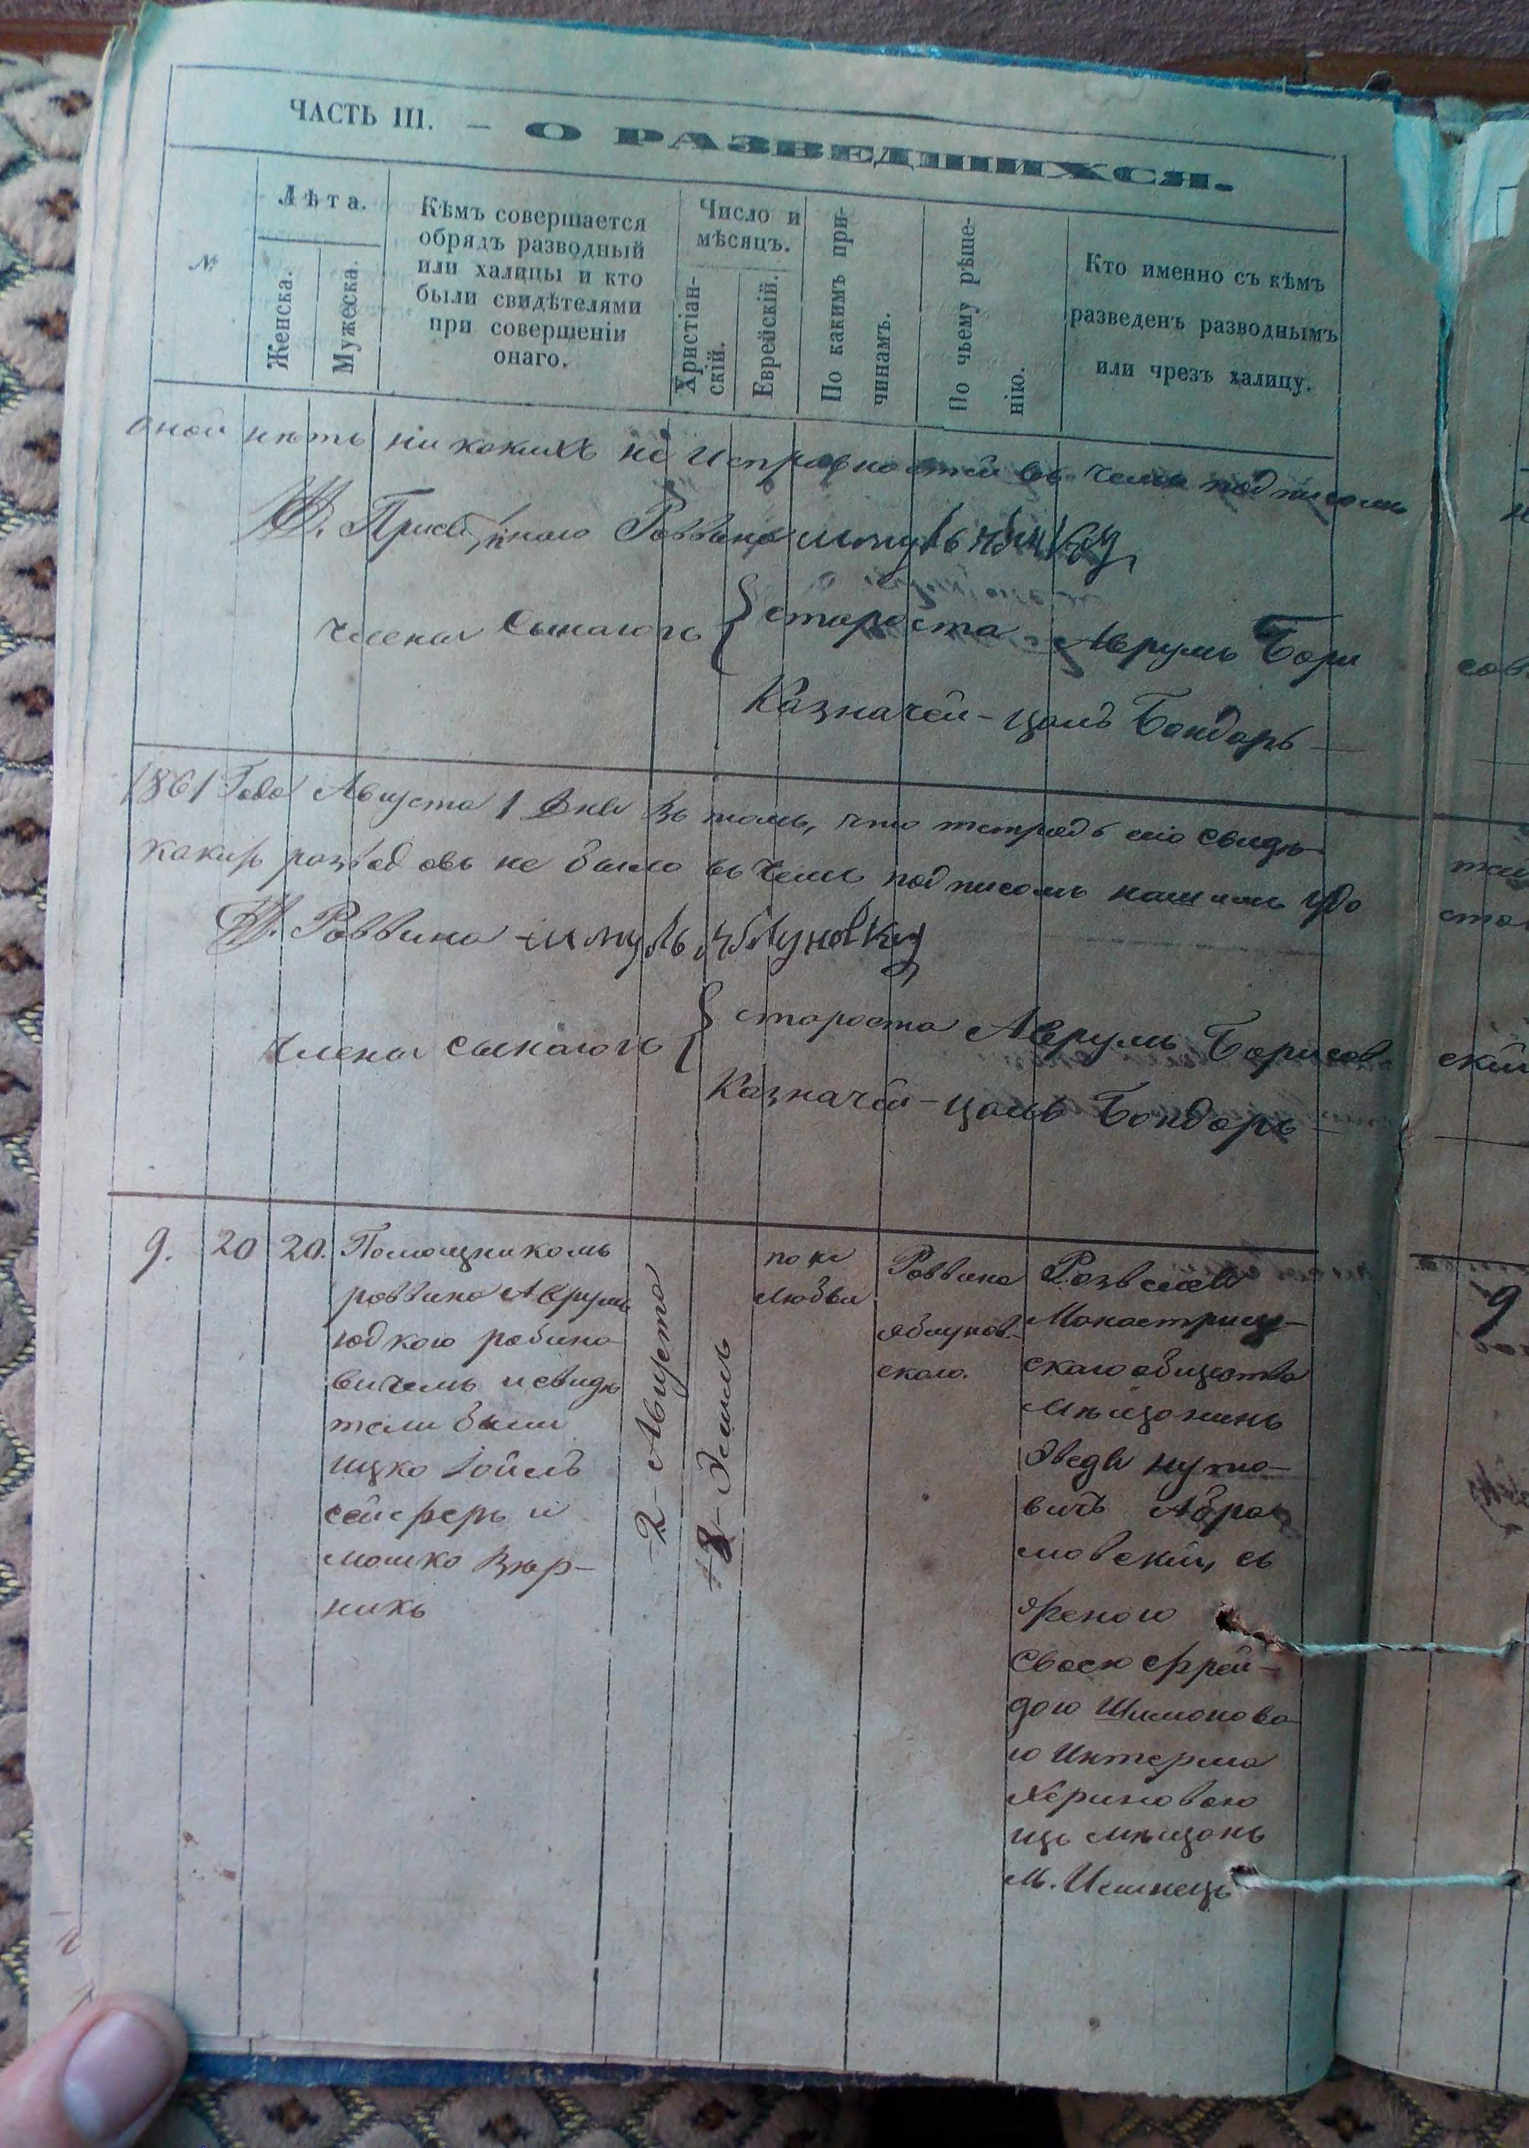 ЧАСТЬ III. — О РАЗВЕДШИХСЯ.
№
Лѣта.
Женска.
Мужеска.
Кѣмъ совершается
обрядъ разводный
или халицы и кто
были свидѣтелями
при совершеніи
онаго.
Число и
мѣсяцъ.
Христіан-
скій.
Еврейскій.
По какимъ при-
чинамъ.
По чьему рѣше-
нію.
Кто именно съ кѣмъ
разведенъ разводнымъ
или чрезъ халицу.
оной нѣтъ ни какихъ не исправностей въ чемъ подписомъ
Раввина
члены сынагоги { староста Аврумъ Бори
Казначей - Цаль Бондарь
1861 Года Августа 1 дня въ томъ, что тетрадь сію свидѣ-
какихъ разводовъ не было въ чемъ подписомъ нашимъ удо
Раввина Шмуль Яблуновскій
члены сынагоги { староста Аврумъ Борисов
Казначей - Цаль Бондарь
9.
20
20.
Помощникомъ
раввина Аврумъ
Юдкою рабино-
вичемъ и свидѣ
тели были
ицко Іойсъ
сейферъ и
мошко
никъ
2 Августа
8
по не
любви
Раввина
яблунов-
скаго.
Развелся
Монастрищ-
скаго общества
мѣщанинъ
нутко-
вичъ Абра
мовскій, съ
женою
своею Фрей-
дою Шимонова
ю Интерма
хериновою
изъ мѣщанъ
м.